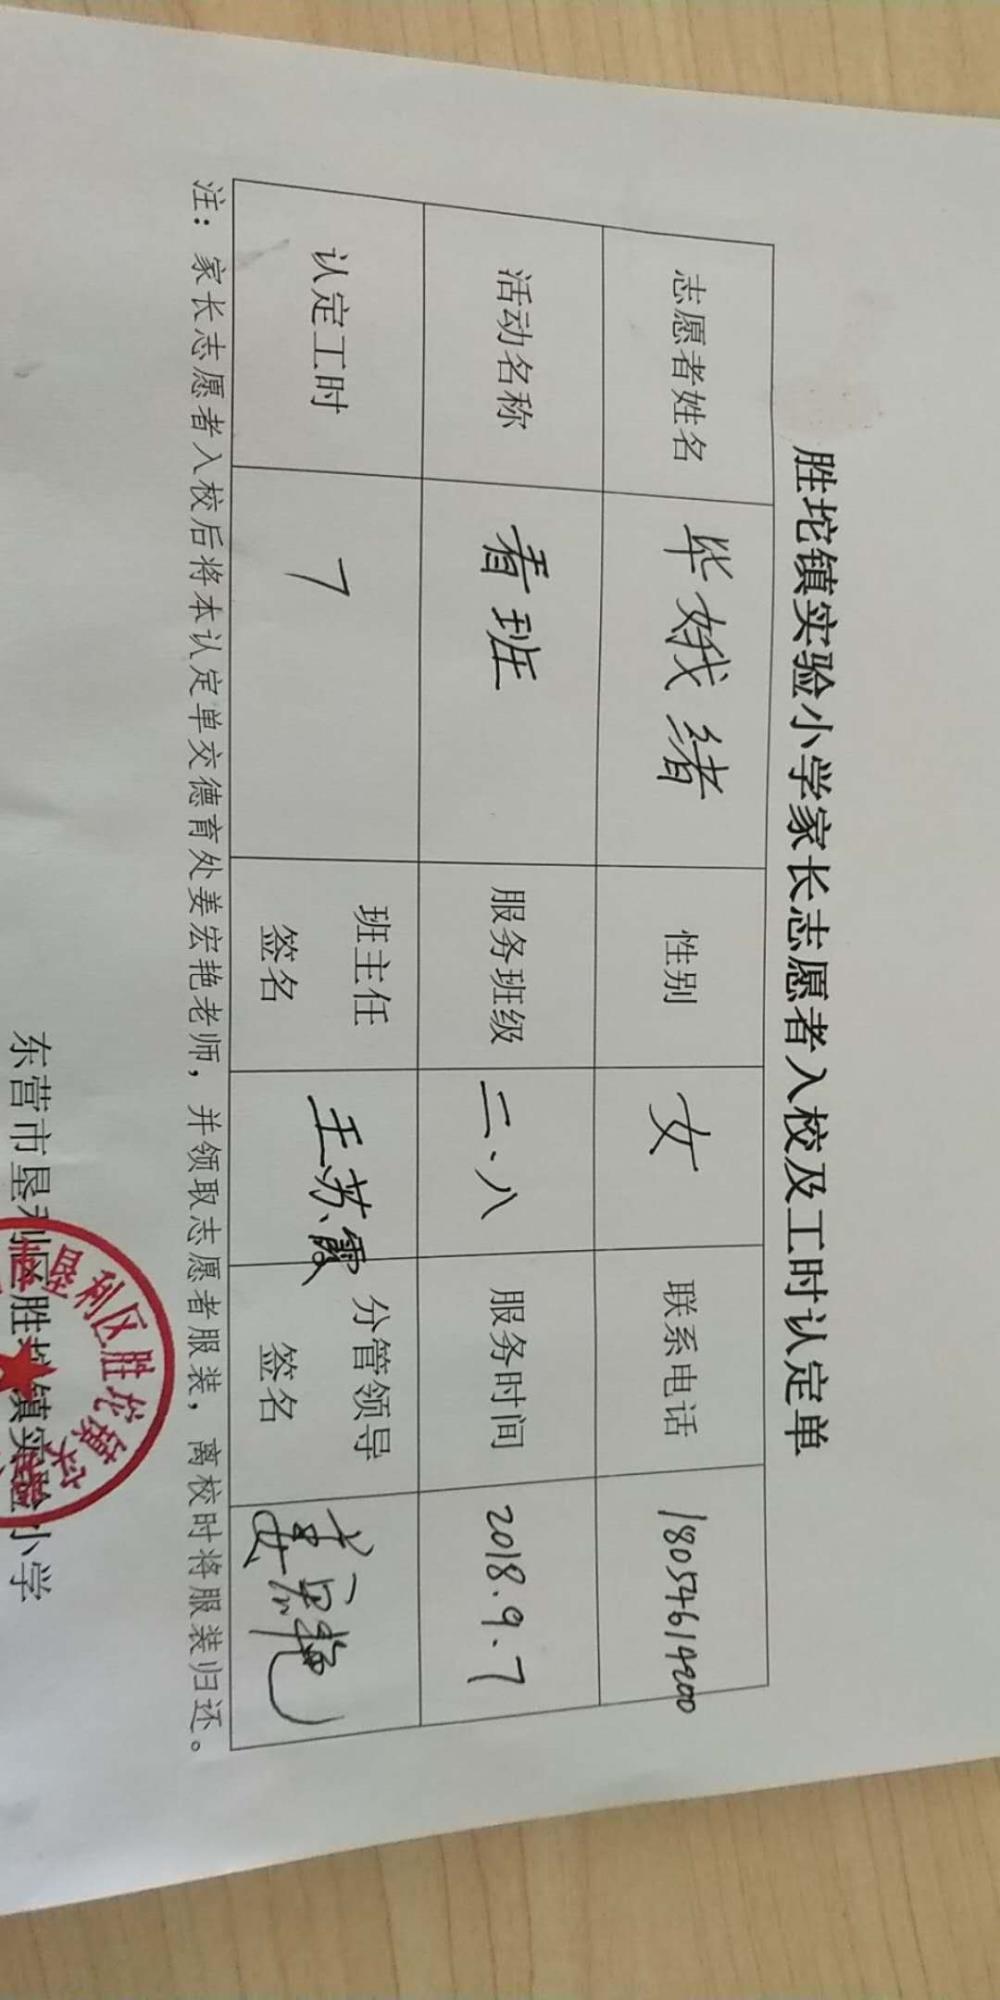 胜坨镇实验小学家长志愿者入校及工时认定单
志愿者姓名 毕娥绪 性别 女 联系电话 18054614200
活动名称 看班 服务班级 二、八 服务时间 2018.9.7
认定工时 7 班主任签名 王苏霞 分管领导签名 姜宏艳
注：家长志愿者入校后将本认定单交德育处姜宏艳老师，并领取志愿者服装，离校时将服装归还。
东营市垦利区胜坨镇实验小学
垦利区胜坨镇实